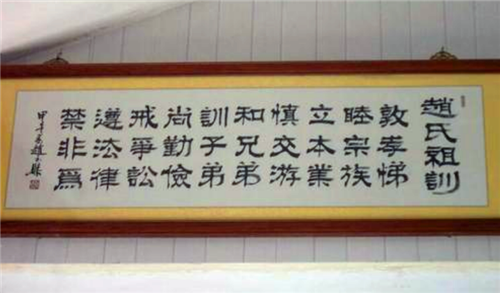 趙氏祖訓
敦孝悌
睦宗族
立本業
慎交游
和兄弟
訓子弟
尚勤儉
戒爭訟
遵法律
禁非爲